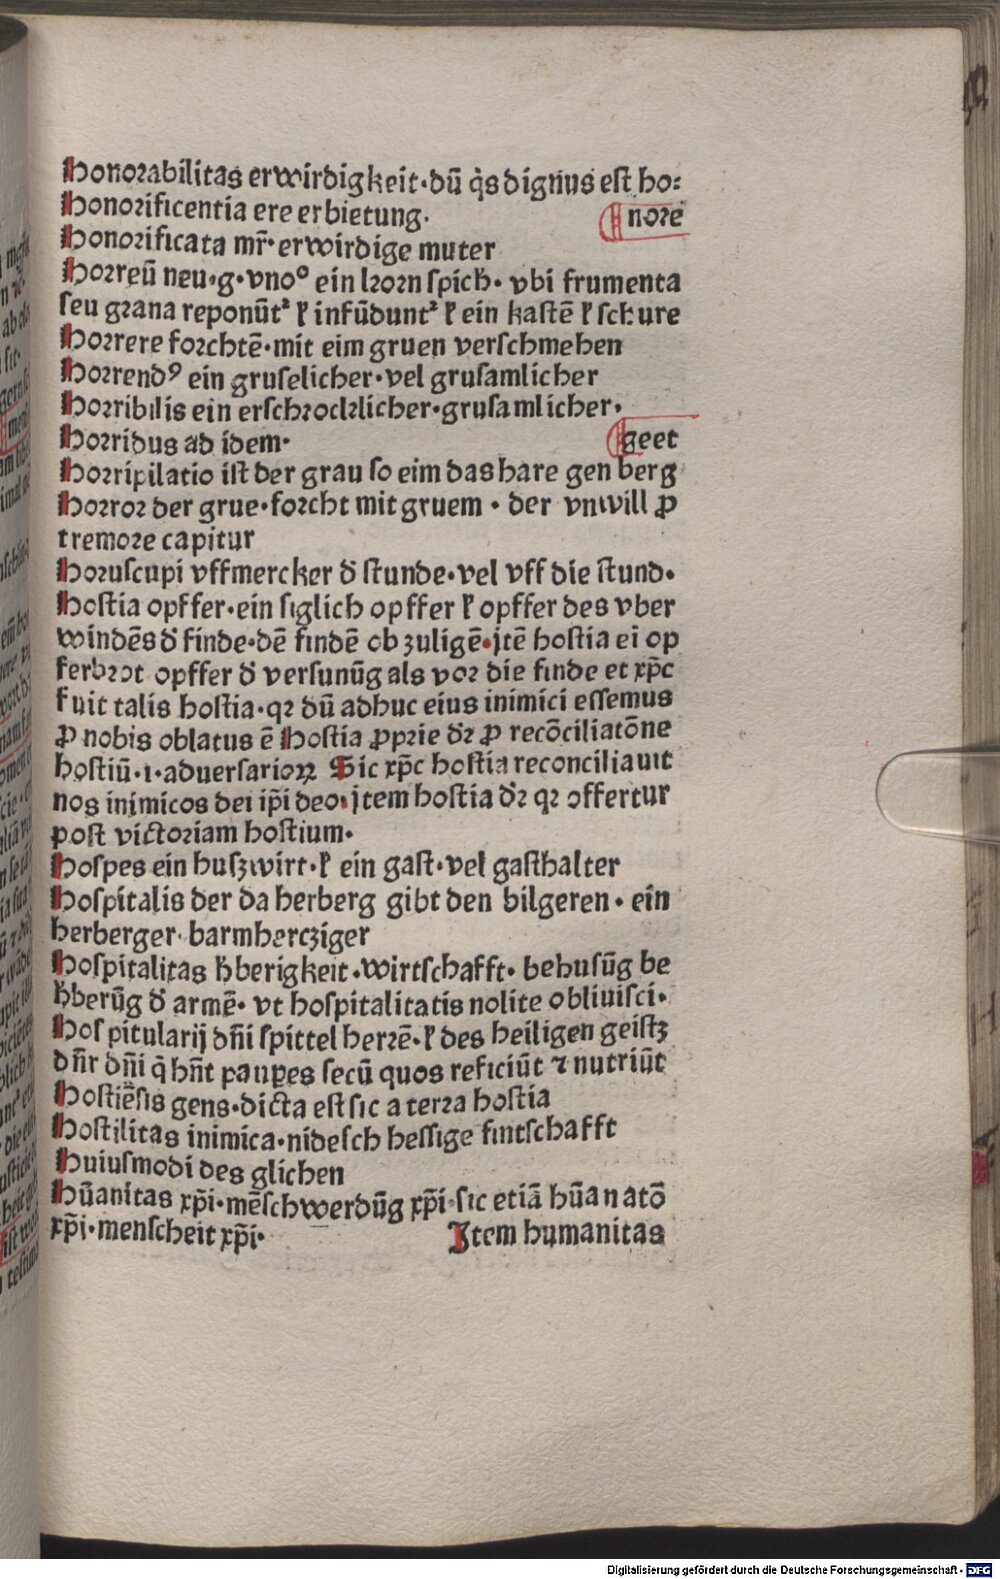 Honorabilitas erwirdigkeit·dū q̇s dignus est ho⸗
Honorificentia ere erbietung· nore
Honorificata mr̄·erwirdige muter
Horreū neu·g·vno° ein korn spich̄· vbi frumenta
seu grana reponūtᷣ ł infūduntᷣ ł ein kastē ł schure
Horrere forchtē·mit eim gruen verschmehen
Horrendꝰ ein gruselicher·vel grusamlicher
Horribilis ein erschrocklicher·grusamlicher·
Horridus ad idem· geet
Horripilatio ist der grau so eim das hare gen berg
Horror der grue·forcht mit gruem · der vnwill ꝓ
tremore capitur
Horuscupi vffmercker d̄ stunde·vel vff die stund·
Hostia opffer·ein siglich opffer ł opffer des vber
windēs d̄ finde·dē findē ob zuligē·jtē hostia eī op
ferbrot opffer d̄ versunūg als vor die finde et xp̄c
fuit talis hostia·qꝛ dū adhuc eius inimici essemus
ꝓ nobis oblatus ē Hostia ꝓprie dꝛ̄ ꝓ recōciliatōne
hostiū·i·aduersarioꝝ Sic xp̄c hostia reconciliauit
nos inimicos dei ip̄i deo·jtem hostia dꝛ̄ qꝛ offertur
post victoriam hostium·
Hospes ein huszwirt·ł ein gast·vel gasthalter
Hospitalis der da herberg gibt den bilgeren · ein
herberger·barmhercziger
Hospitalitas h̄berigkeit·wirtschafft· behusūg be
h̄berūg d̄ armē· vt hospitalitatis nolite obliuisci·
Hospitularij dn̄i spittel herrē·ł des heiligen geistz
dn̄r dn̄i q̄ hn̄t pauꝑes secū quos reficiūt ⁊ nutriūt
Hostiēsis gens·dicta est sic a terra hostia
Hostilitas inimica·nidesch hessige fintschafft
Huiusmodi des glichen
Hūanitas xp̄i·mēschwerdūg xp̄i·sic etiā hūanatō
xp̄i·menscheit xp̄i· Item humanitas
Digitalisierung gefördert durch die Deutsche Forschungsgemeinschaft - DFG